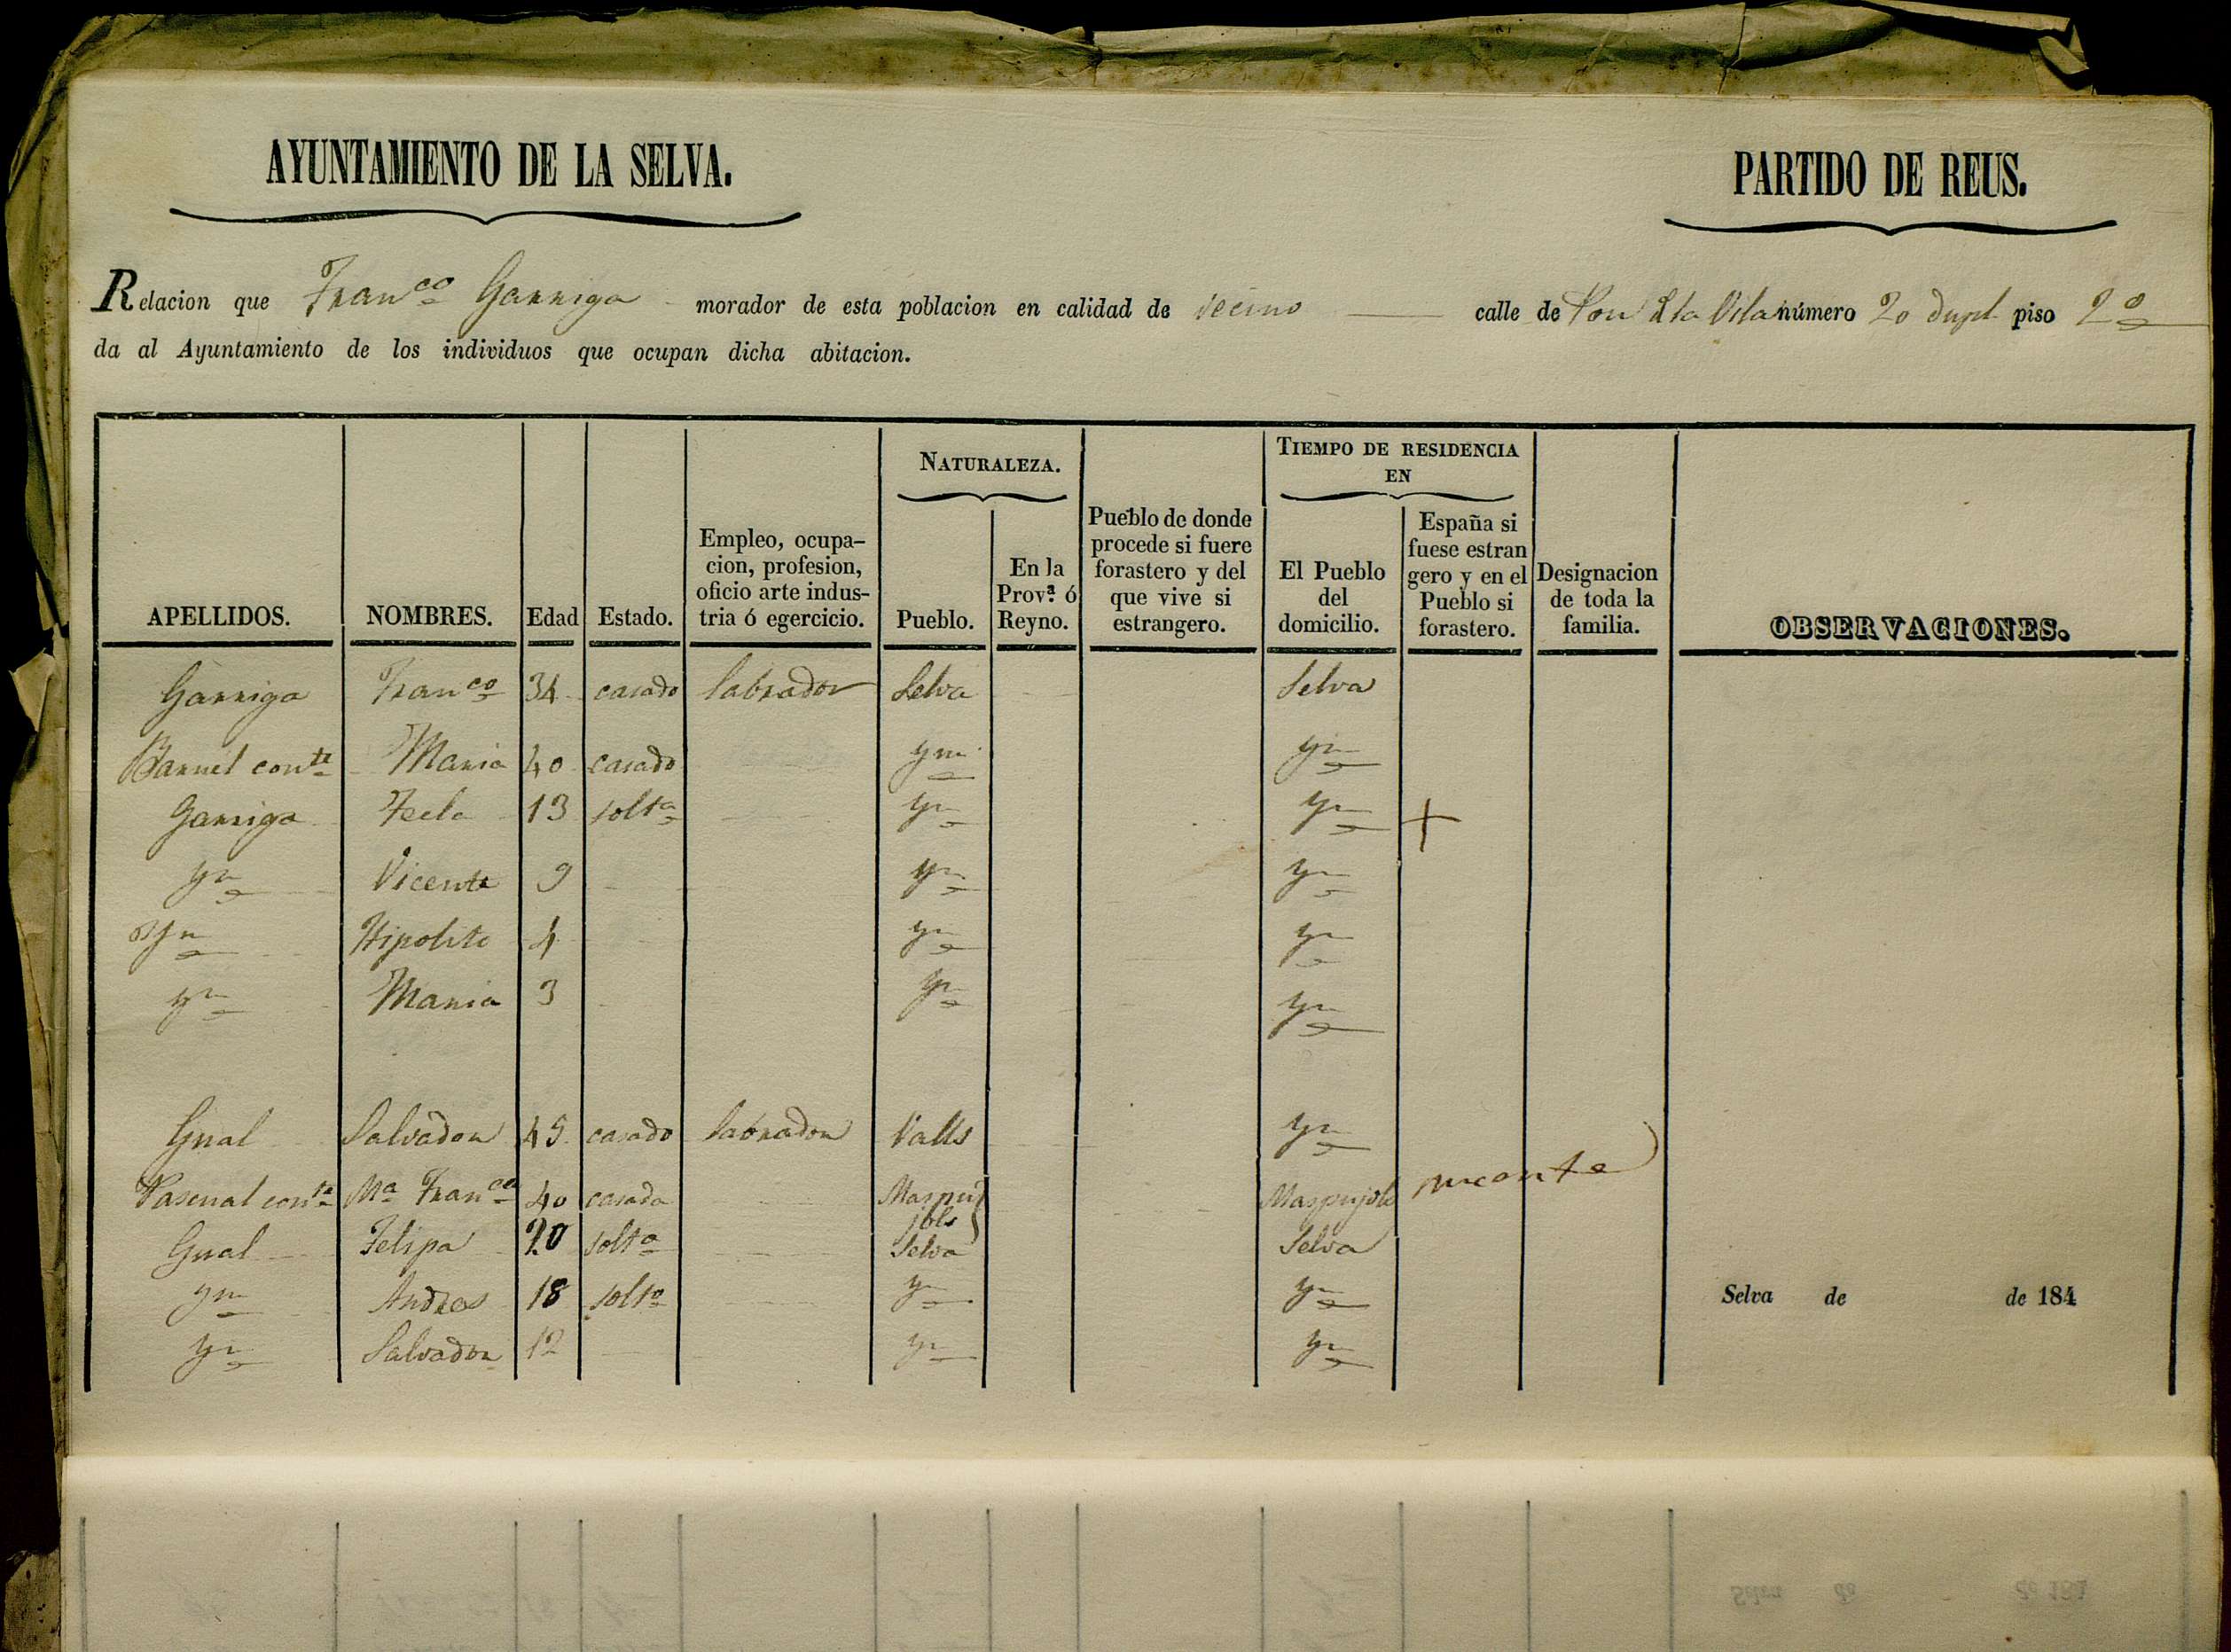 AYUNTAMIENTO DE LA SELVA.
PARTIDO DE REUS.
Relacion que Franco Garriga morador de esta poblacion en calidad de vecino calle de Pou d la Vila número 20 dupl. piso 2º
da al Ayuntamiento de los individuos que ocupan dicha abitacion.
NATURALEZA. TIEMPO DE RESIDENCIA EN
APELLIDOS. NOMBRES. Edad Estado. Empleo, ocupa-cion, profesion, oficio arte indus-tria ó egercicio. Pueblo. En la Prov.ª ó Reyno. Pueblo de donde procede si fuere forastero y del que vive si estrangero. El Pueblo del domicilio. España si fuese estran gero y en el Pueblo si forastero. Designacion de toda la familia. OBSERVACIONES.
Garriga Franco 34 casado labrador Selva Selva
Barruel conte Maria 40 casado ym ym
Garriga Tecla 13 solta ym ym +
ym Vicente 9 ym ym
ym Hipolito 4 ym ym
ym Maria 3 ym ym
Gual Salvador 45 casado labrador Valls ym
Pascual conta Ma Franca 40 casada Maspujols Maspujols
Gual Felipa 20 solta Selva Selva
ym Andres 18 solto ym ym
Selva de de 184
ym Salvador 12 ym ym